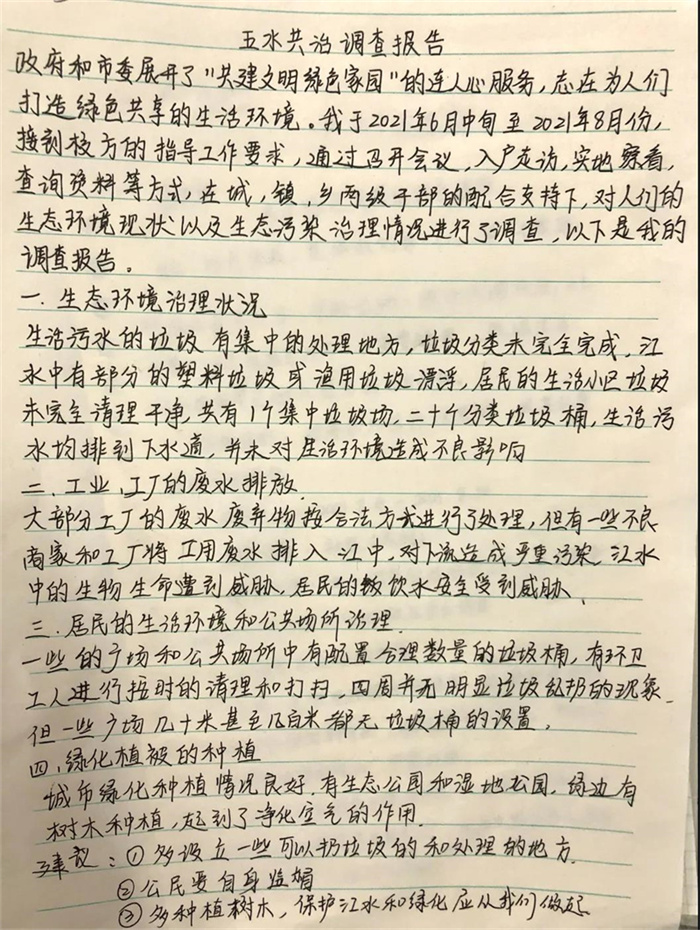 五水共治调查报告
政府和市委展开了"共建文明绿色家园"的连人心服务,志在为人们
打造绿色共享的生活环境。我于2021年6月中旬至2021年8月份,
接到校方的指导工作要求,通过召开会议,入户走访,实地察看,
查询资料等方式,在城,镇,乡两级干部的配合支持下,对人们的
生态环境现状以及生态污染治理情况进行了调查,以下是我的
调查报告。
一.生态环境治理状况
生活污水的垃圾有集中的处理地方,垃圾分类未完全完成,江
水中有部分的塑料垃圾或渔用垃圾漂浮,居民的生活小区垃圾
未完全清理干净,共有1个集中垃圾场,二十个分类垃圾桶,生活污
水均排到下水道,并未对生活环境造成不良影响
二.工业,工厂的废水排放.
大部分工厂的废水废弃物按合法方式进行了处理,但有一些不良
商家和工厂将工用废水排入江中,对下流造成严重污染,江水
中的生物生命遭到威胁,居民的饮水安全受到威胁.
三.居民的生活环境和公共场所治理.
一些的广场和公共场所中有配置合理数量的垃圾桶,有环卫
工人进行按时的清理和打扫,四周并无明显垃圾乱扔的现象.
但一些广场几十米甚至几百米都无垃圾桶的设置.
四.绿化植被的种植
城市绿化种植情况良好.有生态公园和湿地公园,绿边有
树木种植,起到了净化空气的作用.
建议:①多设立一些可以扔垃圾的和处理的地方.
②公民要自身监
③多种植树木,保护江水和绿化应从我们做起